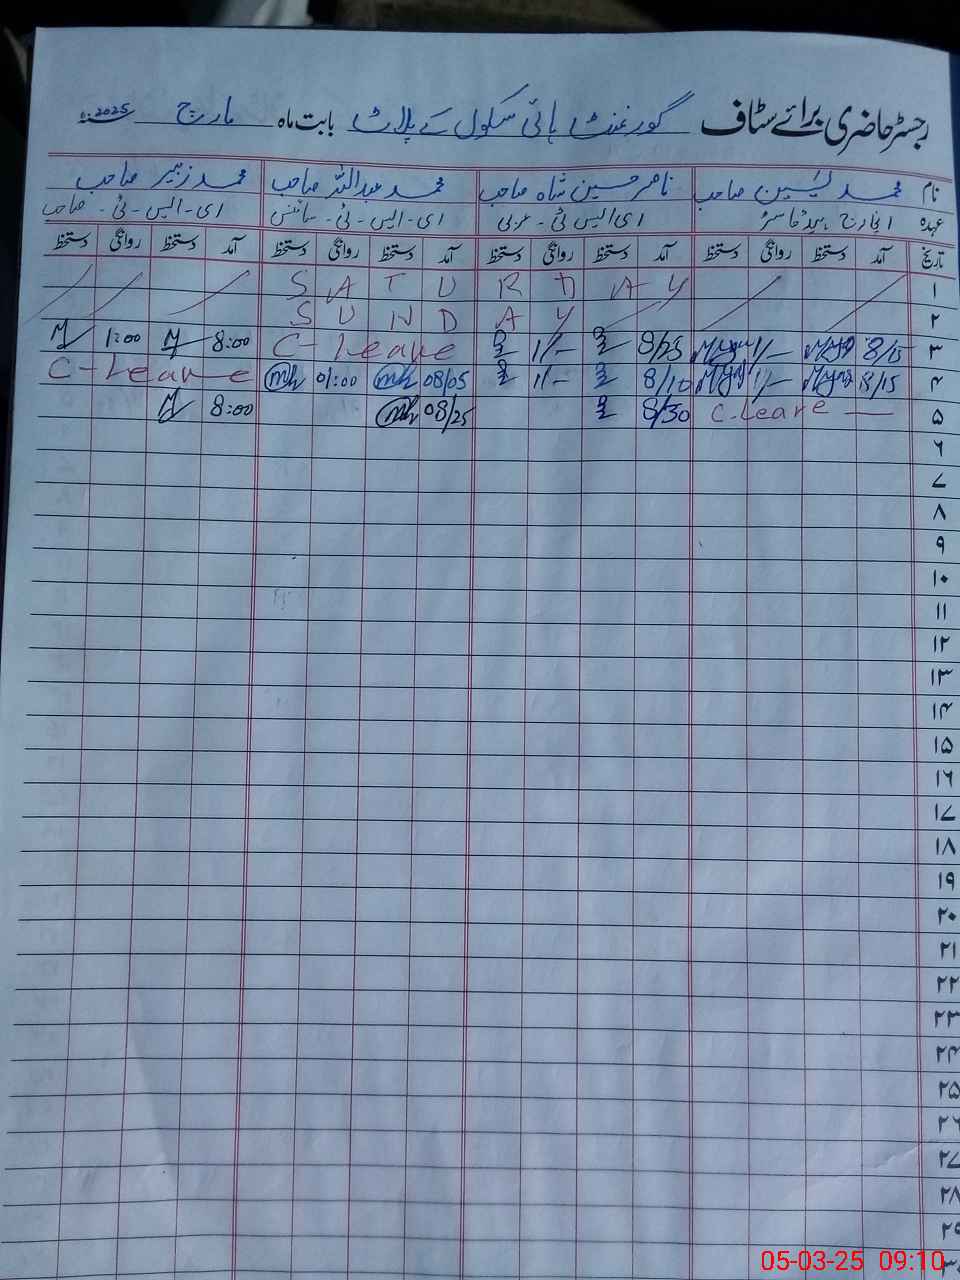 رجسٹر حاضری برائے سٹاف گورنمنٹ ہائی سکول کے پلاٹ بابت ماہ مارچ 2025
نام محمد یٰسین صاحب ناصر حسین شاہ صاحب محمد عبداللہ صاحب محمد زبیر صاحب
عہدہ انچارج ہیڈ ماسٹر ای ایس ٹی - عربی ای - ایس - ٹی - سائنس ای - ایس - ٹی - صاحب
تاریخ آمد دستخط روانگی دستخط آمد دستخط روانگی دستخط آمد دستخط روانگی دستخط آمد دستخط روانگی دستخط
۱ SATURDAY
۲ SUNDAY
۳ 8/15 1/- 8/25 1/- C-Leave 8:00 1:00
۴ 8/15 1/- 8/10 1/- 08/05 01:00 C-Leave
۵ C.Leave — 8/30 08/25 8:00
۶
۷
۸
۹
۱۰
۱۱
۱۲
۱۳
۱۴
۱۵
۱۶
۱۷
۱۸
۱۹
۲۰
۲۱
۲۲
۲۳
۲۴
۲۵
۲۶
۲۷
۲۸
۲۹
۳۰
05-03-25 09:10